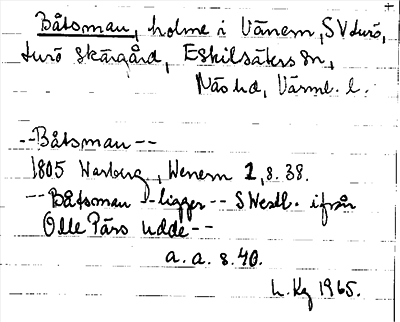 Båtsman, holme i Vänern, SV Lurö,
Lurö skärgård, Eskilsäters sn,
Näs hd, Värml. l.
--Båtsman--
1805 Warberg, Wenern 2, s. 38.
--Båtsman--ligger--SWestl. ifrån
Olle Pärs udde--
a. a. s. 40.
1965.